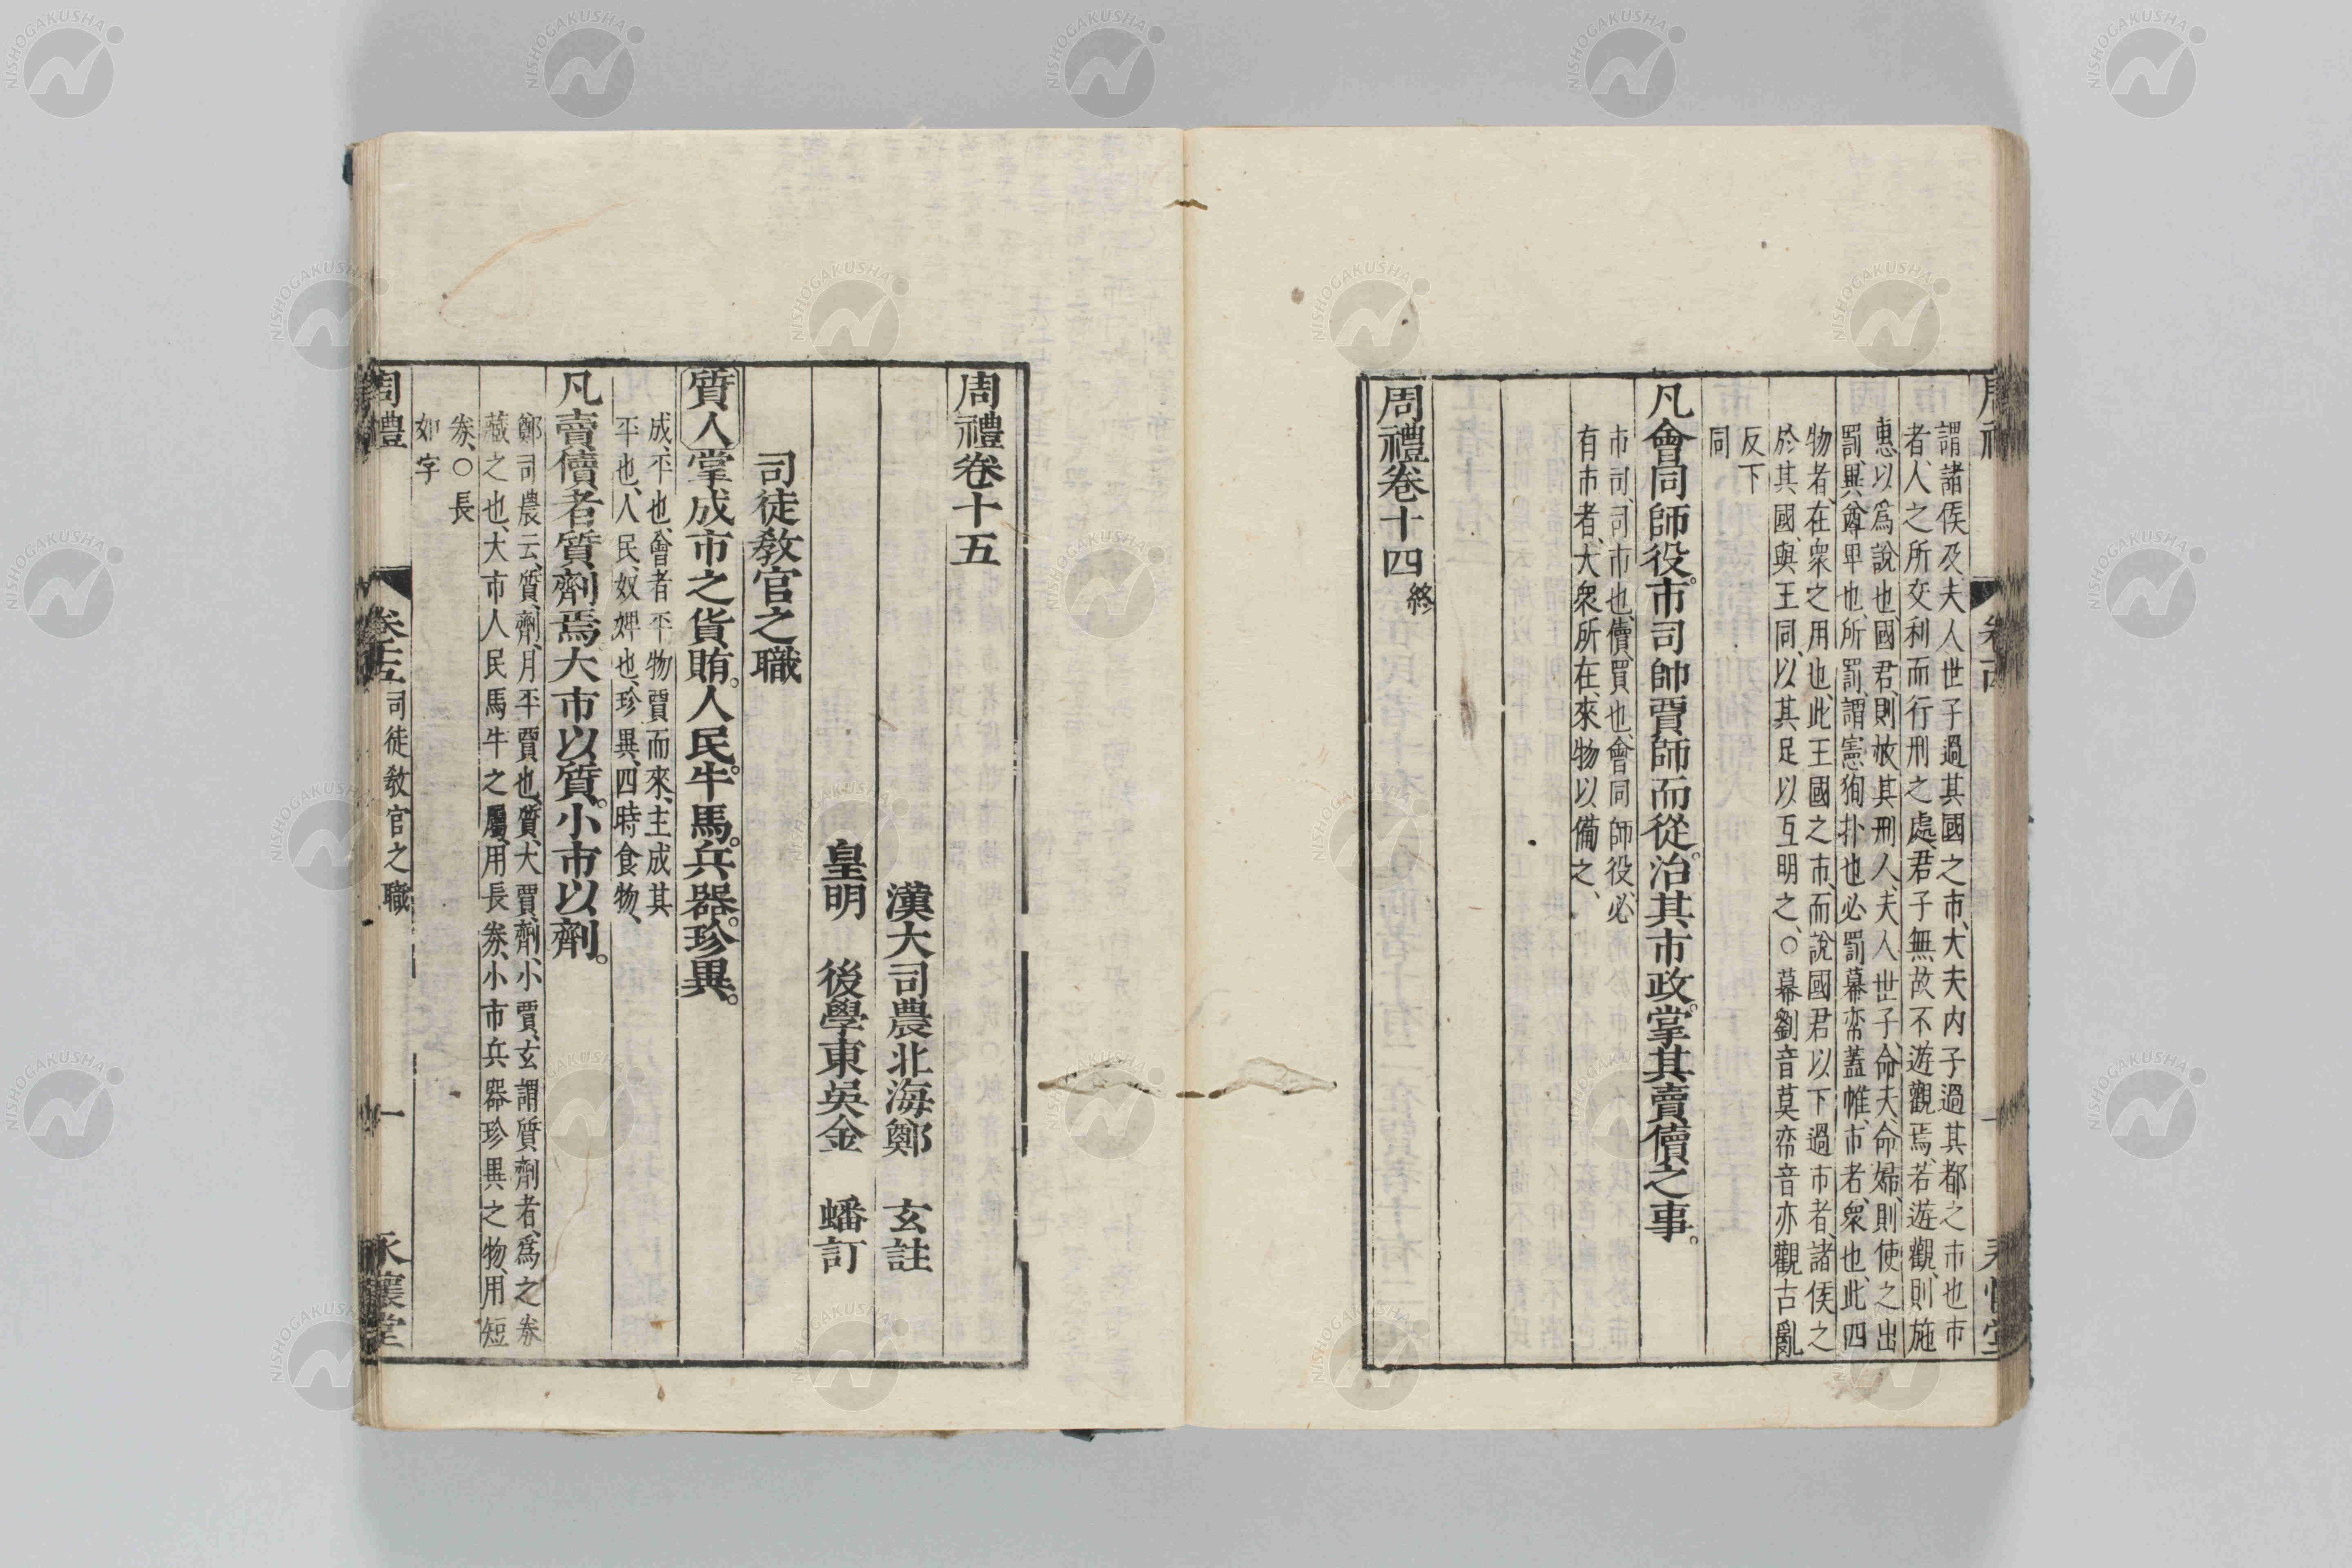 謂諸侯及夫人世子過其國之市、大夫内子過其都之市也市
者、人之所交利而行刑之處、君子無故不遊觀焉、若遊觀、則施
惠以爲說也、國君、則赦其刑人、夫人世子、命夫、命婦、則使之出
罰、異尊卑也、所罰、謂憲徇扑也必罰幕帟蓋帷、市者、衆也、此四
物者、在衆之用也、此王國之市、而說國君以下過市者、諸侯之
於其國、與王同、以其足以互明之、○幕劉音莫帟音亦觀古亂
反下
同
凡會同師役。市司帥賈師而從。治其市政。掌其賣儥之事。
市司、司市也、儥、買也、會同師役、必
有市者、大衆所在、來物以備之、
周禮卷十四 終
周禮卷十五
漢大司農北海鄭 玄註
皇明 後學東吳金 蟠訂
司徒敎官之職
質人掌成市之貨賄。人民。牛馬。兵器。珍異。
成、平也、會者平物賈而來、主成其
平也、人民、奴婢也、珍異、四時食物、
凡賣儥者質劑焉大市以質。小市以劑。
鄭司農云、質、劑、月平賈也、質、大賈、劑、小賈、玄謂質劑者、爲之券
藏之也、大市人民馬牛之屬、用長券、小市兵器珍異之物、用短
券、○長
如字
周禮 卷十五 司徒敎官之職 一 永懷堂
NISHOGAKUSHA